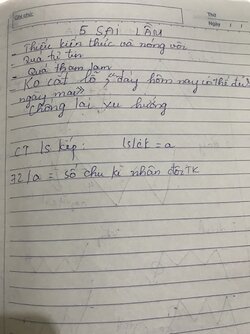 Thứ
Ngày
5 SAI LẦM
- Thiếu kiến thức và nóng vội
- Quá tự tin
- Quá tham lam
- Ko cắt lỗ, "đáy hôm nay có thể là
ngày mai"
- Chống lại xu hướng
CT ls kép: ls/ck = a
72/a = số chu kì nhân đôi TK